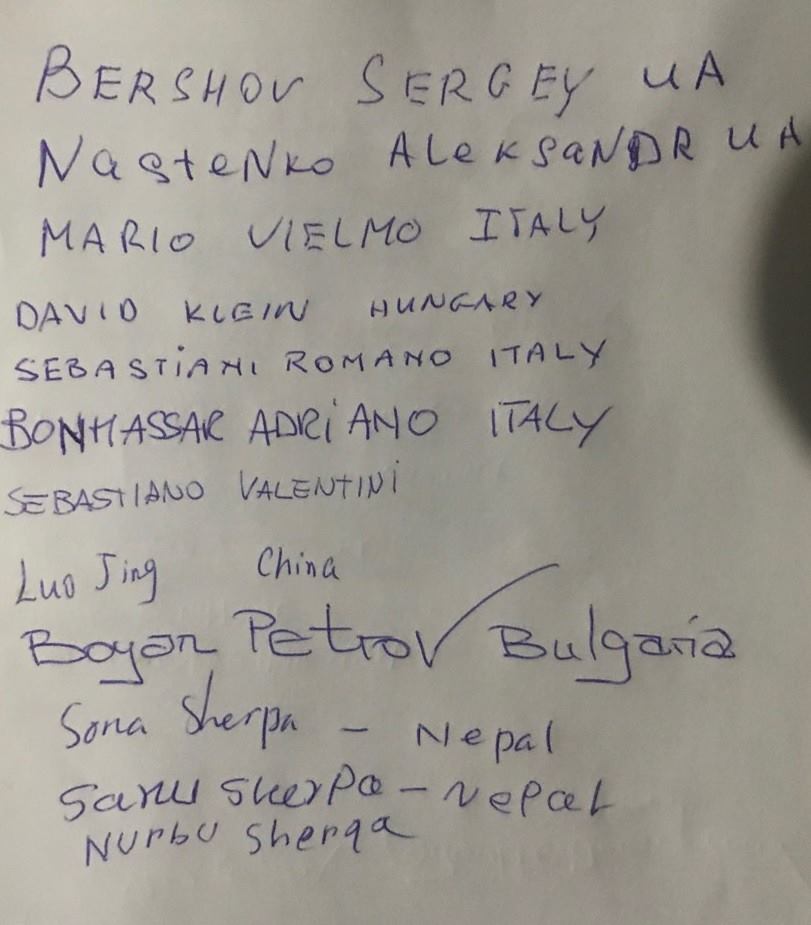 BERSHOV SERGEY UA
NasteNko AleksaNDR UA
MARIO VIELMO ITALY
DAVID KLEIN HUNGARY
SEBASTiANI ROMANO ITALY
BONMASSAR ADRiANO ITALY
SEBASTIANO VALENTINi
Luo Jing China
Boyan Petrov Bulgaria
Sona Sherpa - Nepal
Sanu Sherpa - Nepal
Nurbu Sherpa